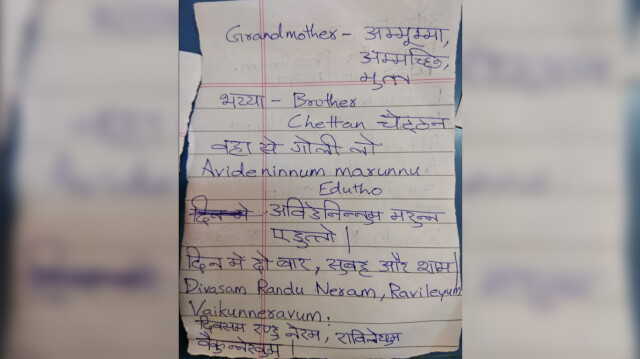 Grandmother - अम्मूम्मा,
अम्मच्छि,
मुत्त
भय्या - Brother
Chettan चेट्टन
वहा से गोली लो
Avideninnum marunnu
Edutho
दिन मे अविडेनिन्नुम मरुन्न
एडुत्तो |
दिन मे दो बार, सुबह और शाम |
Divasam Randu Neram, Ravileyum
Vaikunneravum.
दिवसम रण्डु नेरम, राविलेयुम
वैकुन्नेरवुम |